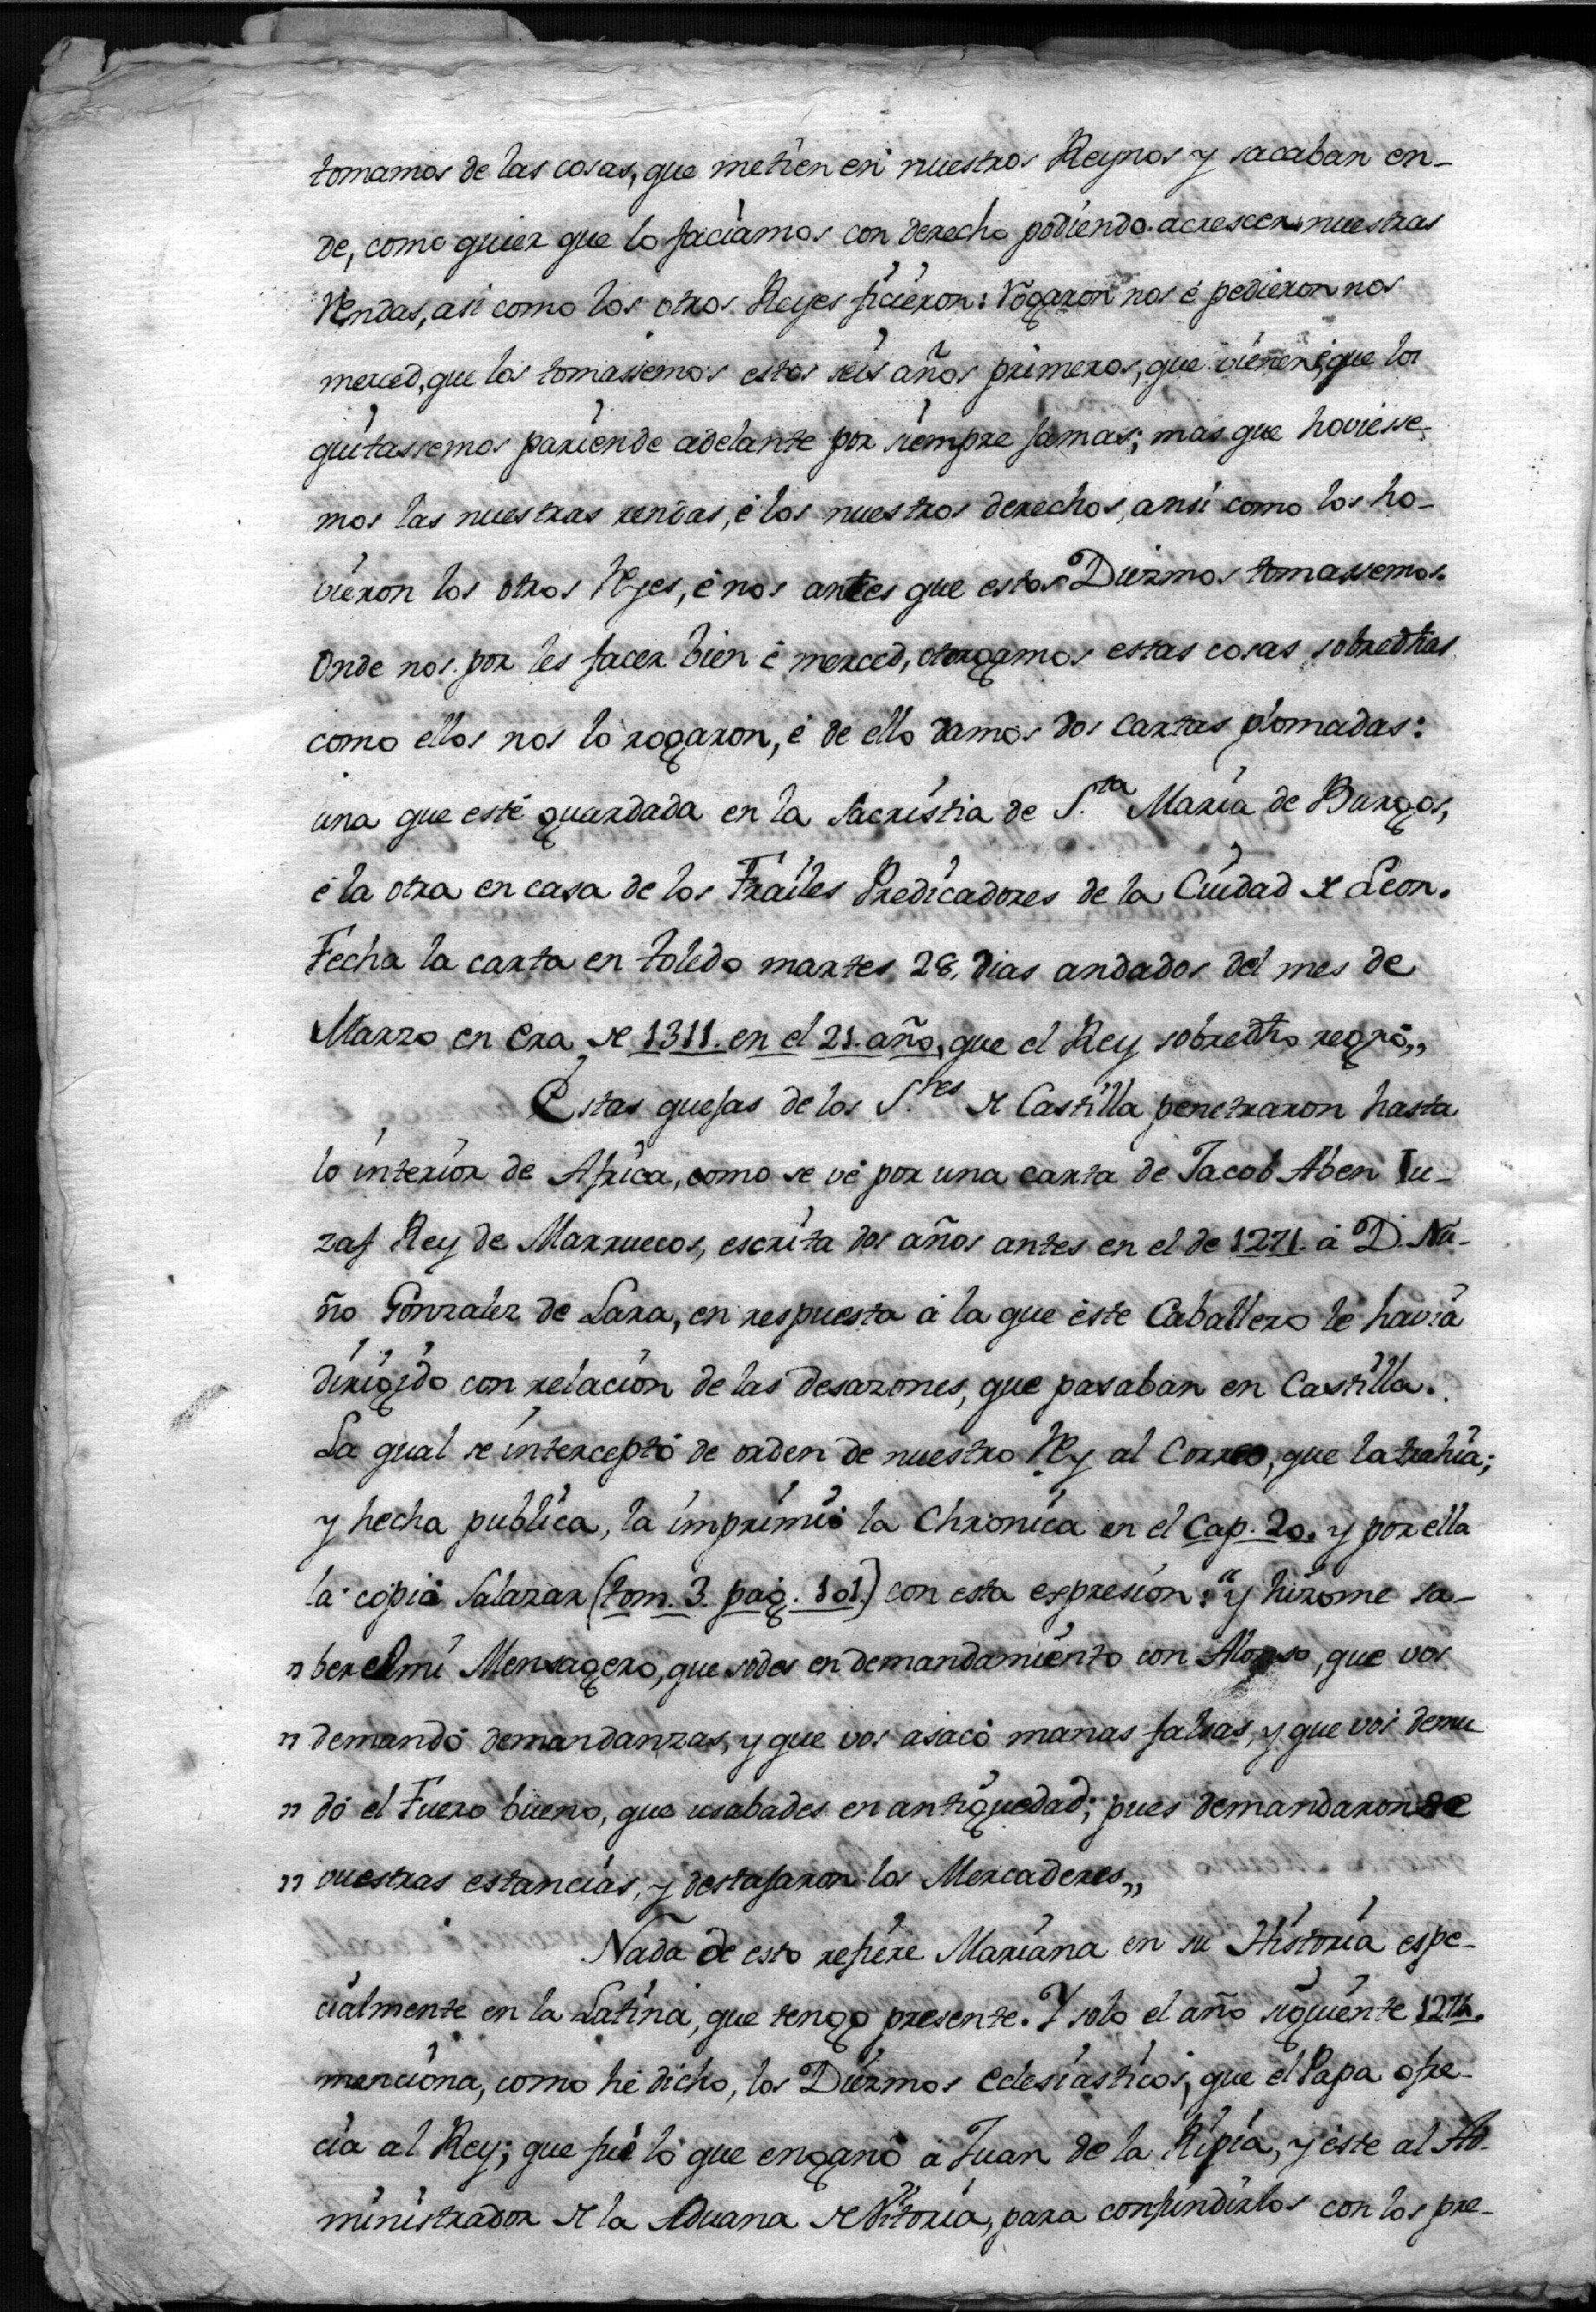 tomamos de las cosas, que metien en nuestros Reynos y sacaban en-
de, como quier que lo faciamos con derecho podiendo acrescer nuestras
Rendas, asi como los otros Reyes ficieron: Rogaron nos é pedieron nos
merced, que los tomassemos estos seis años primeros, que vienen, é que los
quitassemos pariende adelante por siempre jamas; mas que haviesse-
mos las nuestras rendas, é los nuestros derechos, ansi como los ho-
vieron los otros Reyes, é nos antes que estos Diezmos tomassemos.
Onde nos por les facer bien é merced, otorgamos estas cosas sobredhas
como ellos nos lo rogaron, é de ello damos dos cartas plomadas:
una que esté guardada en la Sacristia de S.ta Maria de Burgos,
é la otra en casa de los Frailes Predicadores de la Ciudad de Leon.
Fecha la carta en toledo martes 28, dias andados del mes de
Marzo en era de 1311. en el 21. año, que el Rey sobredho regnó„
Estas quejas de los S.res de Castilla penetraron hasta
lo interior de Africa, como se vé por una carta de Jacob Aben Iu-
zaf Rey de Marruecos, escrita dos años antes en el de 1271. á D. Nu-
ño Gonzalez de Lara, en respuesta á la que éste Caballero le havia
dirigido con relacion de las desazones, que pasaban en Castilla.
La qual se interceptó de orden de nuestro Rey al Correo, que la trahia;
y hecha publica, la imprimió la Chronica en el Cap. 20. y por ella
la copia Salazar (tom. 3. pag. 101.) con esta expresion: "y hizome sa-
„ ber el mi Mensagero, que sodes en demandamiento con Alonso, que vos
„ demandó demandanzas, y que vos asacó manas falsas, y que vos demu
„ dó el Fuero bueno, que usabades en antiguedad; pues demandaron de
„ vuestras estancias, y destajaron los Mercaderes„
Nada de esto refiere Mariana en su Historia espe-
cialmente en la Latina, que tengo presente. Y solo el año siguiente
menciona, como hé dicho, los Diezmos eclesiasticos, que el Papa ofre-
cia al Rey; que fué lo que engañó á Juan de la Ripia, y éste al Ad-
ministrador de la Aduana de Vitoria, para confundirlos con los pre-